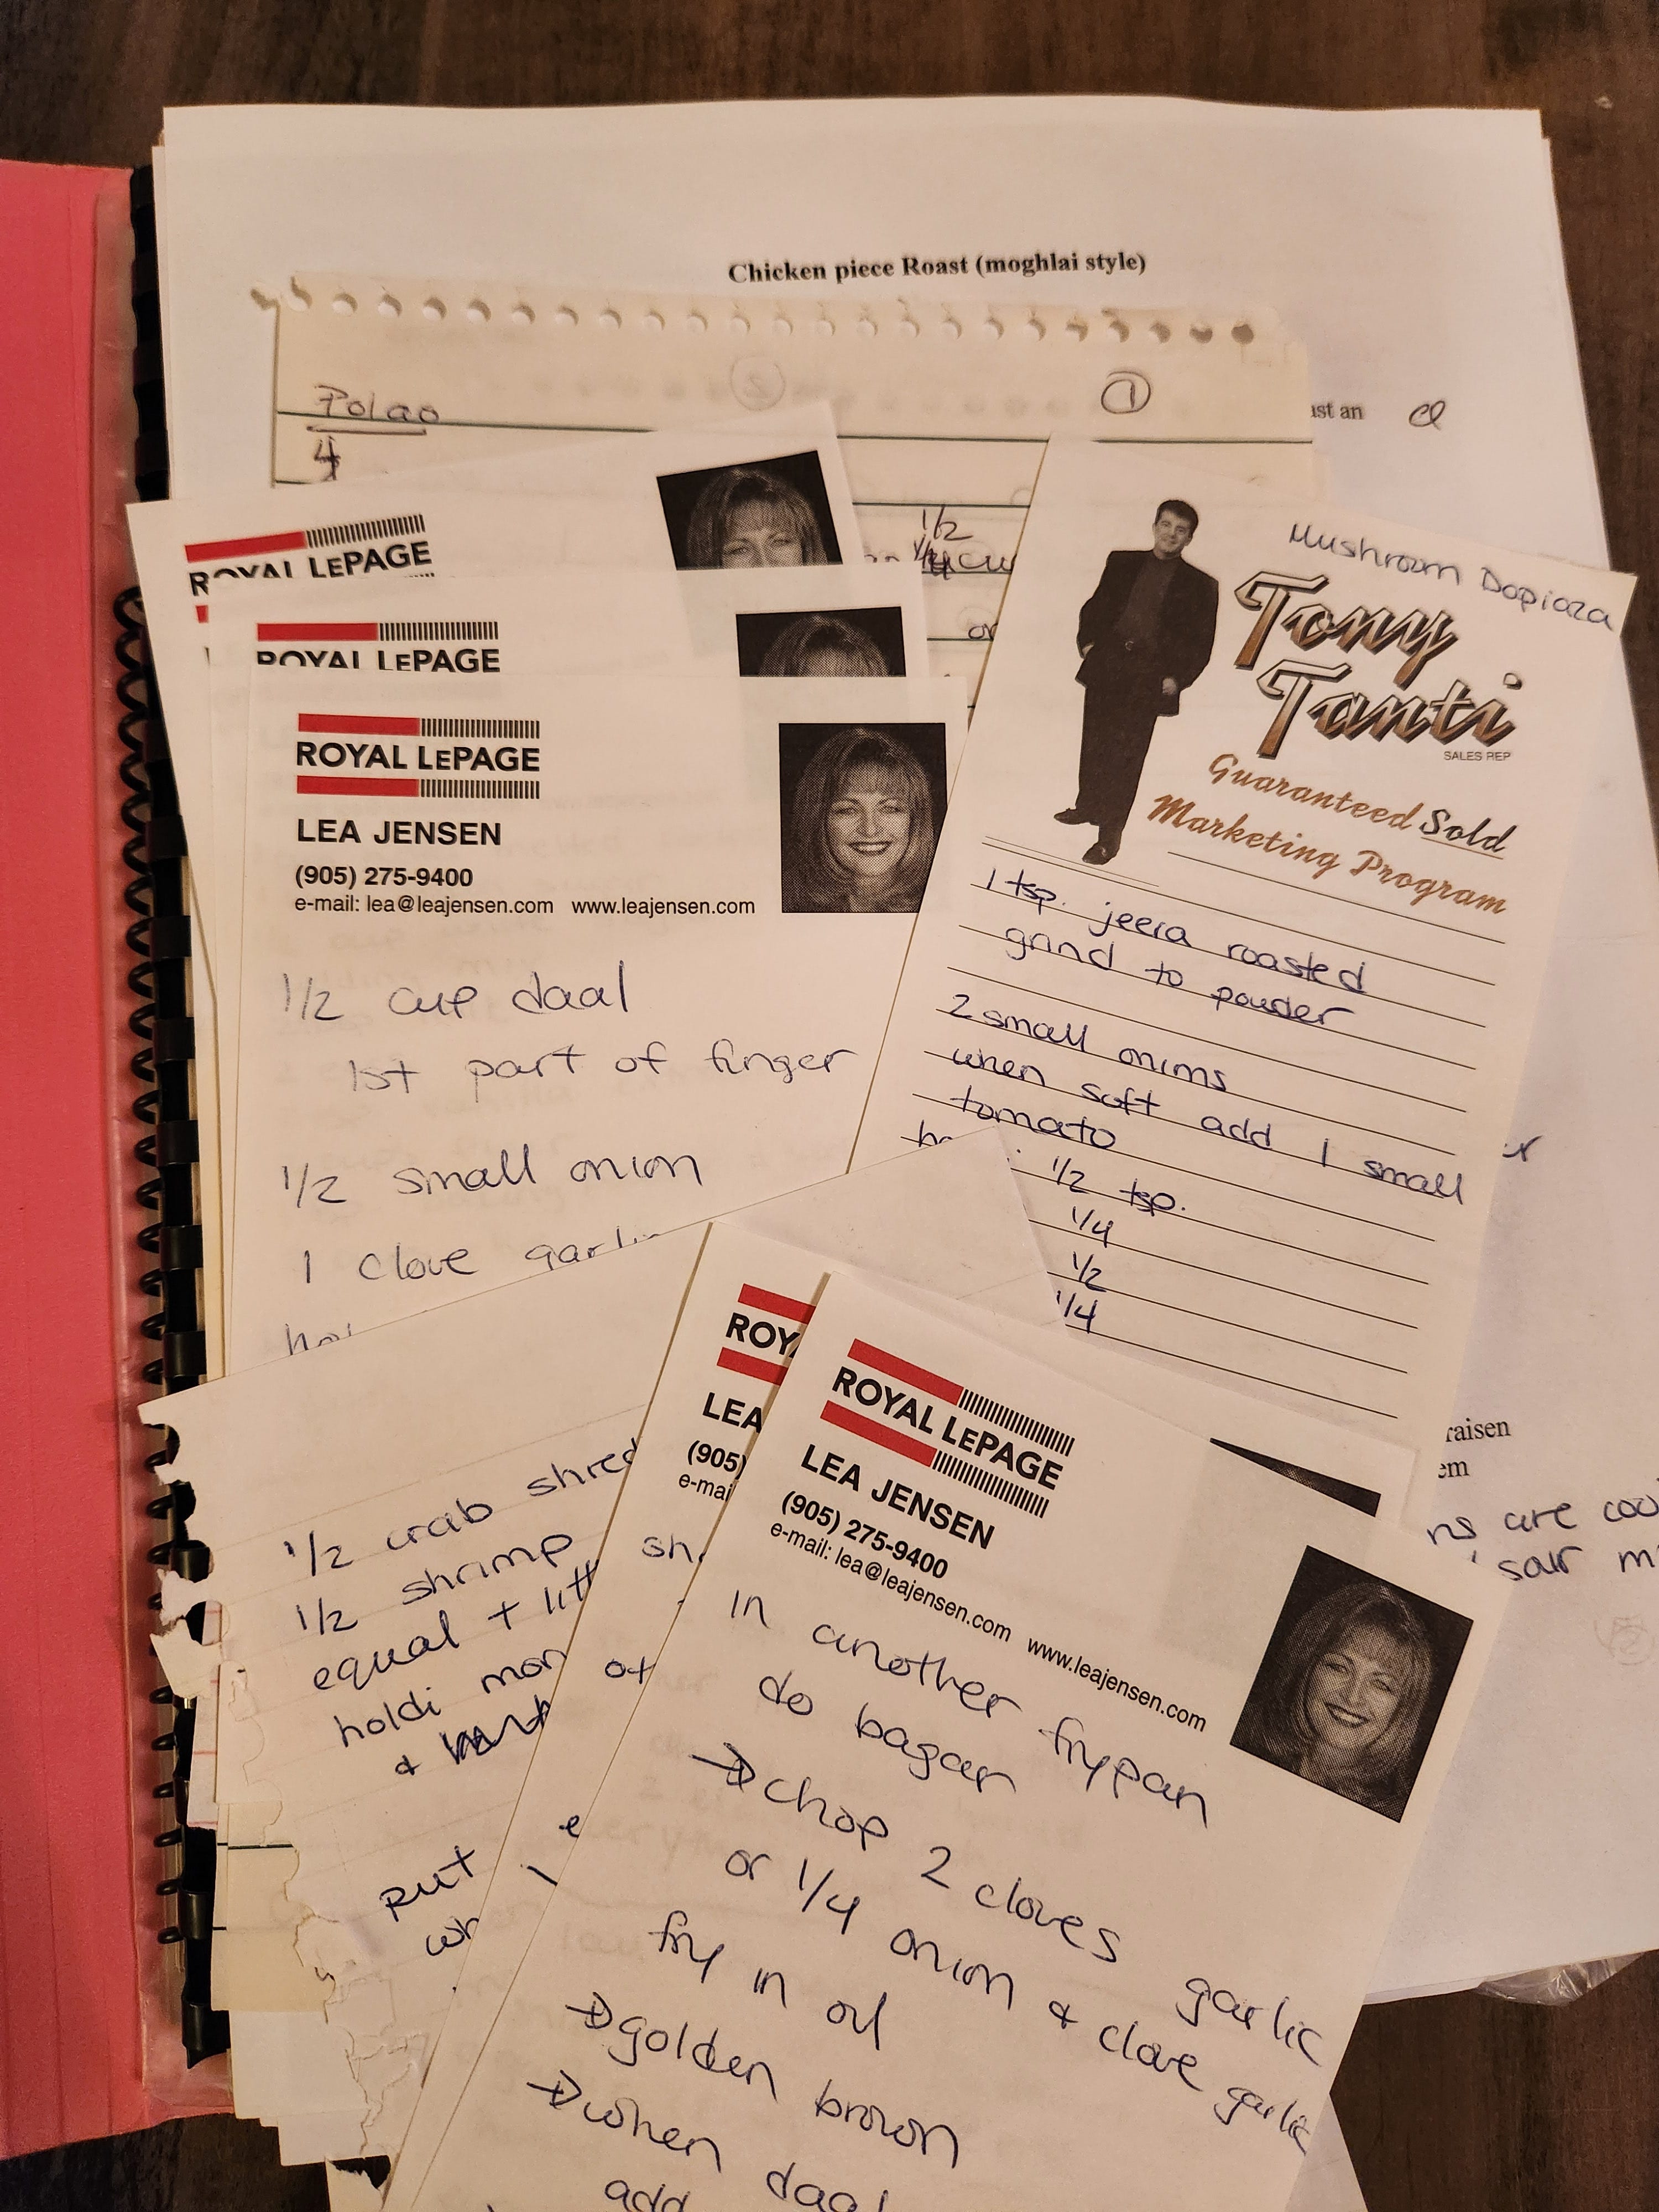 Chicken piece Roast (moghlai style)
Polao
2
1
4
ast an
1/2
or
ROYAL LEPAGE
ROYAL LEPAGE
ROYAL LEPAGE
LEA JENSEN
(905) 275-9400
e-mail: lea@leajensen.com www.leajensen.com
1/2 cup daal
1st part of finger
1/2 small onion
1 clove garli
Mushroom Dopiaza
Tony
Tanti
SALES REP
Guaranteed Sold
Marketing Program
1 tsp. jeera roasted
grind to powder
2 small onions
when soft add 1 small
tomato
1/2 tsp.
1/4
1/2
1/4
raisen
em
ns are coo
1/2 crab shred
1/2 shrimp
equal + litt
holdi
&
put
wh
ROY
LEA
(905)
e-mai
sh
ROYAL LEPAGE
LEA JENSEN
(905) 275-9400
e-mail: lea@leajensen.com www.leajensen.com
in another frypan
do bagar
→ chop 2 cloves garlic
or 1/4 onion & clove garlic
fry in oil
→ golden brown
→ when daal
add